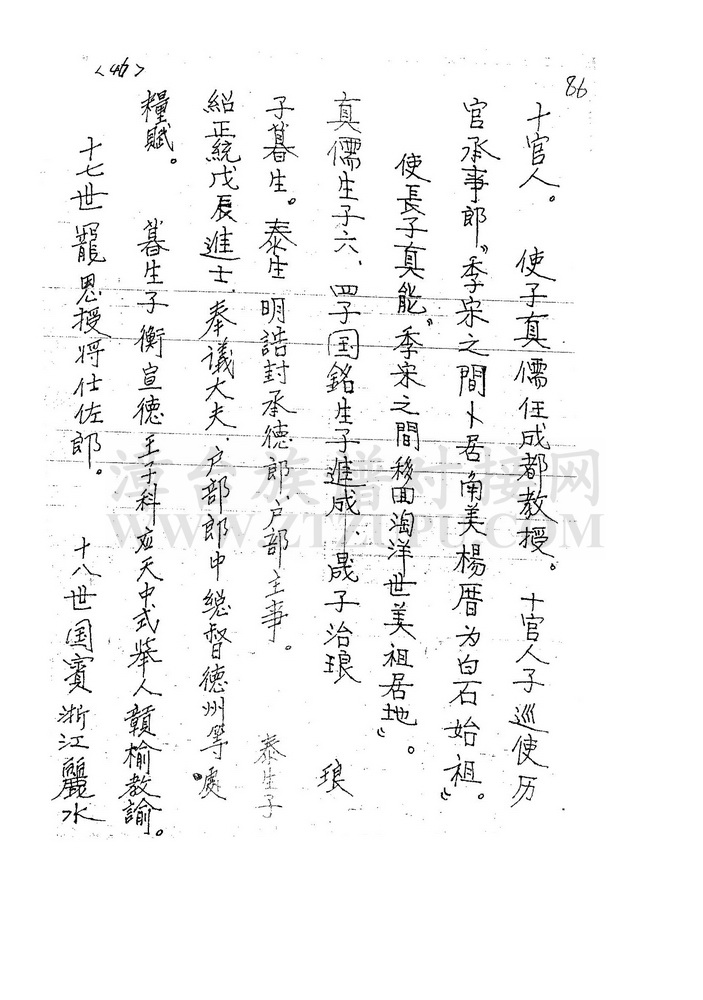 86
<46>
十官人。 使子真儒任成都教授。 十官人子巡使历
官承事郎“季宋之間卜居角美楊厝为白石始祖。”
使長子真能“季宋之間移回淘洋世美祖居地”。
真儒生子六、四子国銘生子進成、晟子治琅 琅
子暮生。泰生明誥封承德郎、户部主事。 泰生子
紹正統戊辰進士、奉議大夫、户部郎中総督德州等處
糧賦。 暮生子衡宣德壬子科应天中式举人贛榆教諭。
十七世寵恩授将仕佐郎。 十八世国賓浙江麗水
漳台族谱对接网
WWW.ZTZUPU.COM